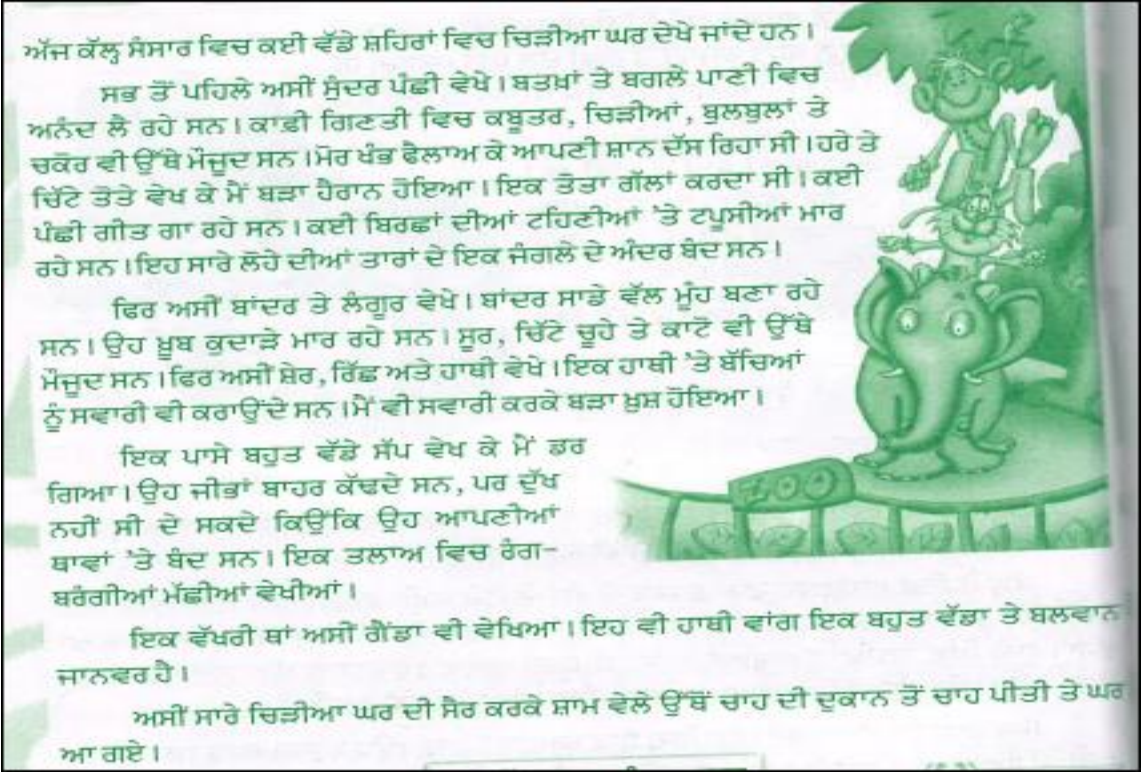 ਅੱਜ ਕੱਲ੍ਹ ਸੰਸਾਰ ਵਿਚ ਕਈ ਵੱਡੇ ਸ਼ਹਿਰਾਂ ਵਿਚ ਚਿੜੀਆ ਘਰ ਦੇਖੇ ਜਾਂਦੇ ਹਨ।
ਸਭ ਤੋਂ ਪਹਿਲੇ ਅਸੀਂ ਸੁੰਦਰ ਪੰਛੀ ਵੇਖੇ। ਬਤਖ਼ਾਂ ਤੇ ਬਗਲੇ ਪਾਣੀ ਵਿਚ
ਅਨੰਦ ਲੈ ਰਹੇ ਸਨ। ਕਾਫ਼ੀ ਗਿਣਤੀ ਵਿਚ ਕਬੂਤਰ, ਚਿੜੀਆਂ, ਬੁਲਬੁਲਾਂ ਤੇ
ਚਕੋਰ ਵੀ ਉੱਥੇ ਮੌਜੂਦ ਸਨ। ਮੋਰ ਖੰਭ ਫੈਲਾਅ ਕੇ ਆਪਣੀ ਸ਼ਾਨ ਦੱਸ ਰਿਹਾ ਸੀ। ਹਰੇ ਤੇ
ਚਿੱਟੇ ਤੋਤੇ ਵੇਖ ਕੇ ਮੈਂ ਬੜਾ ਹੈਰਾਨ ਹੋਇਆ। ਇਕ ਤੋਤਾ ਗੱਲਾਂ ਕਰਦਾ ਸੀ। ਕਈ
ਪੰਛੀ ਗੀਤ ਗਾ ਰਹੇ ਸਨ। ਕਈ ਬਿਰਛਾਂ ਦੀਆਂ ਟਹਿਣੀਆਂ ’ਤੇ ਟਪੂਸੀਆਂ ਮਾਰ
ਰਹੇ ਸਨ। ਇਹ ਸਾਰੇ ਲੋਹੇ ਦੀਆਂ ਤਾਰਾਂ ਦੇ ਇਕ ਜੰਗਲੇ ਦੇ ਅੰਦਰ ਬੰਦ ਸਨ।
ਫਿਰ ਅਸੀਂ ਬਾਂਦਰ ਤੇ ਲੰਗੂਰ ਵੇਖੇ। ਬਾਂਦਰ ਸਾਡੇ ਵੱਲ ਮੂੰਹ ਬਣਾ ਰਹੇ
ਸਨ। ਉਹ ਖ਼ੂਬ ਕੁਦਾੜੇ ਮਾਰ ਰਹੇ ਸਨ। ਸੂਰ, ਚਿੱਟੇ ਚੂਹੇ ਤੇ ਕਾਟੋ ਵੀ ਉੱਥੇ
ਮੌਜੂਦ ਸਨ। ਫਿਰ ਅਸੀਂ ਸ਼ੇਰ, ਰਿੱਛ ਅਤੇ ਹਾਥੀ ਵੇਖੇ। ਇਕ ਹਾਥੀ ’ਤੇ ਬੱਚਿਆਂ
ਨੂੰ ਸਵਾਰੀ ਵੀ ਕਰਾਉਂਦੇ ਸਨ। ਮੈਂ ਵੀ ਸਵਾਰੀ ਕਰਕੇ ਬੜਾ ਖ਼ੁਸ਼ ਹੋਇਆ।
ਇਕ ਪਾਸੇ ਬਹੁਤ ਵੱਡੇ ਸੱਪ ਵੇਖ ਕੇ ਮੈਂ ਡਰ
ਗਿਆ। ਉਹ ਜੀਭਾਂ ਬਾਹਰ ਕੱਢਦੇ ਸਨ, ਪਰ ਦੁੱਖ
ਨਹੀਂ ਸੀ ਦੇ ਸਕਦੇ ਕਿਉਂਕਿ ਉਹ ਆਪਣੀਆਂ
ਥਾਵਾਂ ’ਤੇ ਬੰਦ ਸਨ। ਇਕ ਤਲਾਅ ਵਿਚ ਰੰਗ-
ਬਰੰਗੀਆਂ ਮੱਛੀਆਂ ਵੇਖੀਆਂ।
ZOO
ਇਕ ਵੱਖਰੀ ਥਾਂ ਅਸੀਂ ਗੈਂਡਾ ਵੀ ਵੇਖਿਆ। ਇਹ ਵੀ ਹਾਥੀ ਵਾਂਗ ਇਕ ਬਹੁਤ ਵੱਡਾ ਤੇ ਬਲਵਾਨ
ਜਾਨਵਰ ਹੈ।
ਅਸੀਂ ਸਾਰੇ ਚਿੜੀਆ ਘਰ ਦੀ ਸੈਰ ਕਰਕੇ ਸ਼ਾਮ ਵੇਲੇ ਉੱਥੋਂ ਚਾਹ ਦੀ ਦੁਕਾਨ ਤੋਂ ਚਾਹ ਪੀਤੀ ਤੇ ਘਰ
ਆ ਗਏ।